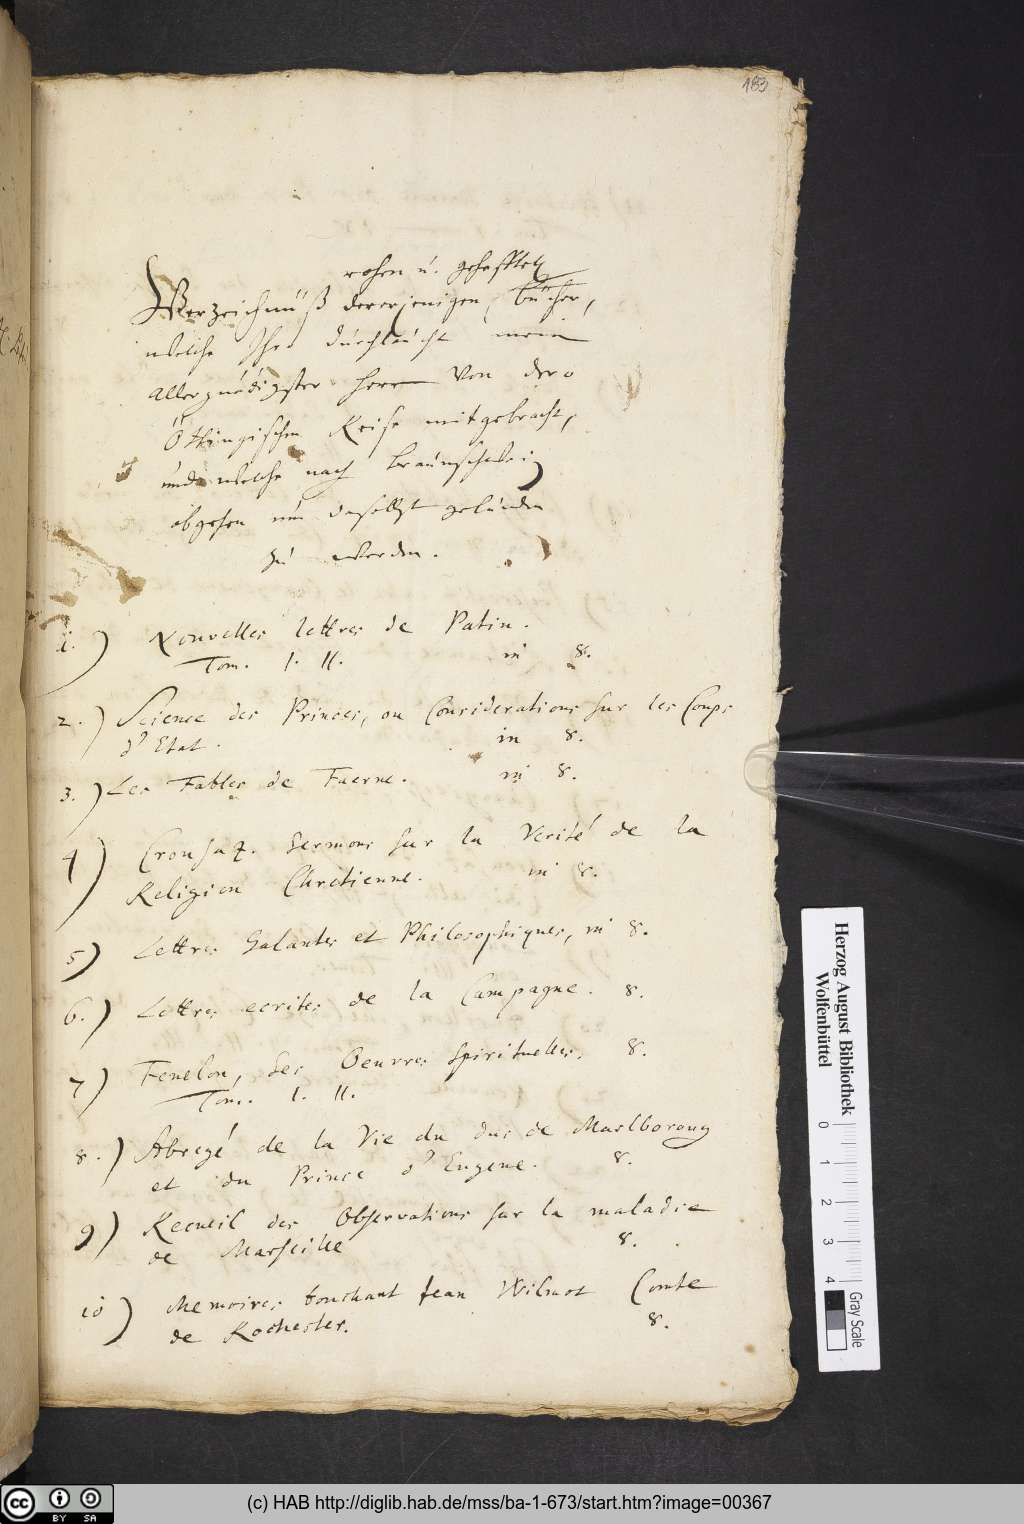 183
rohen u. gehefften
Verzeichnüß dererjenigen, bücher,
welche Ihr. durchlaucht mein
allergnädigster Herr von dero
Öttingischen Reise mitgebracht,
und welche nach braunschweig
abgehen um daselbst gebunden
zu werden.
1.) Nouvelles lettres de Patin.
Tom. I. II. in 8.
2.) Science des Princes, ou Considerations sur les Coups
d'Etat. in 8.
3.) Les Fables de Faerne. in 8.
4) Crousaz. Sermons sur la Verité de la
Religion Chretienne. in 8.
5) Lettres Galantes et Philosophiques, in 8.
6.) Lettres ecrites de la Campagne. 8.
7) Fenelon, Ses Oeuvres spirituelles. 8.
Tom. I. II.
8.) Abregé de la Vie du duc de Marlboroug
et du Prince d'Eugene. 8.
9) Recueil des Observations sur la maladie
de Marseille 8.
10) Memoires touchant Jean Wilmot Comte
de Rochester. 8.
Herzog August Bibliothek
Wolfenbüttel
0 1 2 3 4
Gray Scale
cc BY SA
(c) HAB http://diglib.hab.de/mss/ba-1-673/start.htm?image=00367